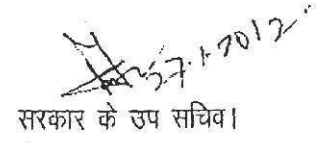 27.1.2012
सरकार के उप सचिव।